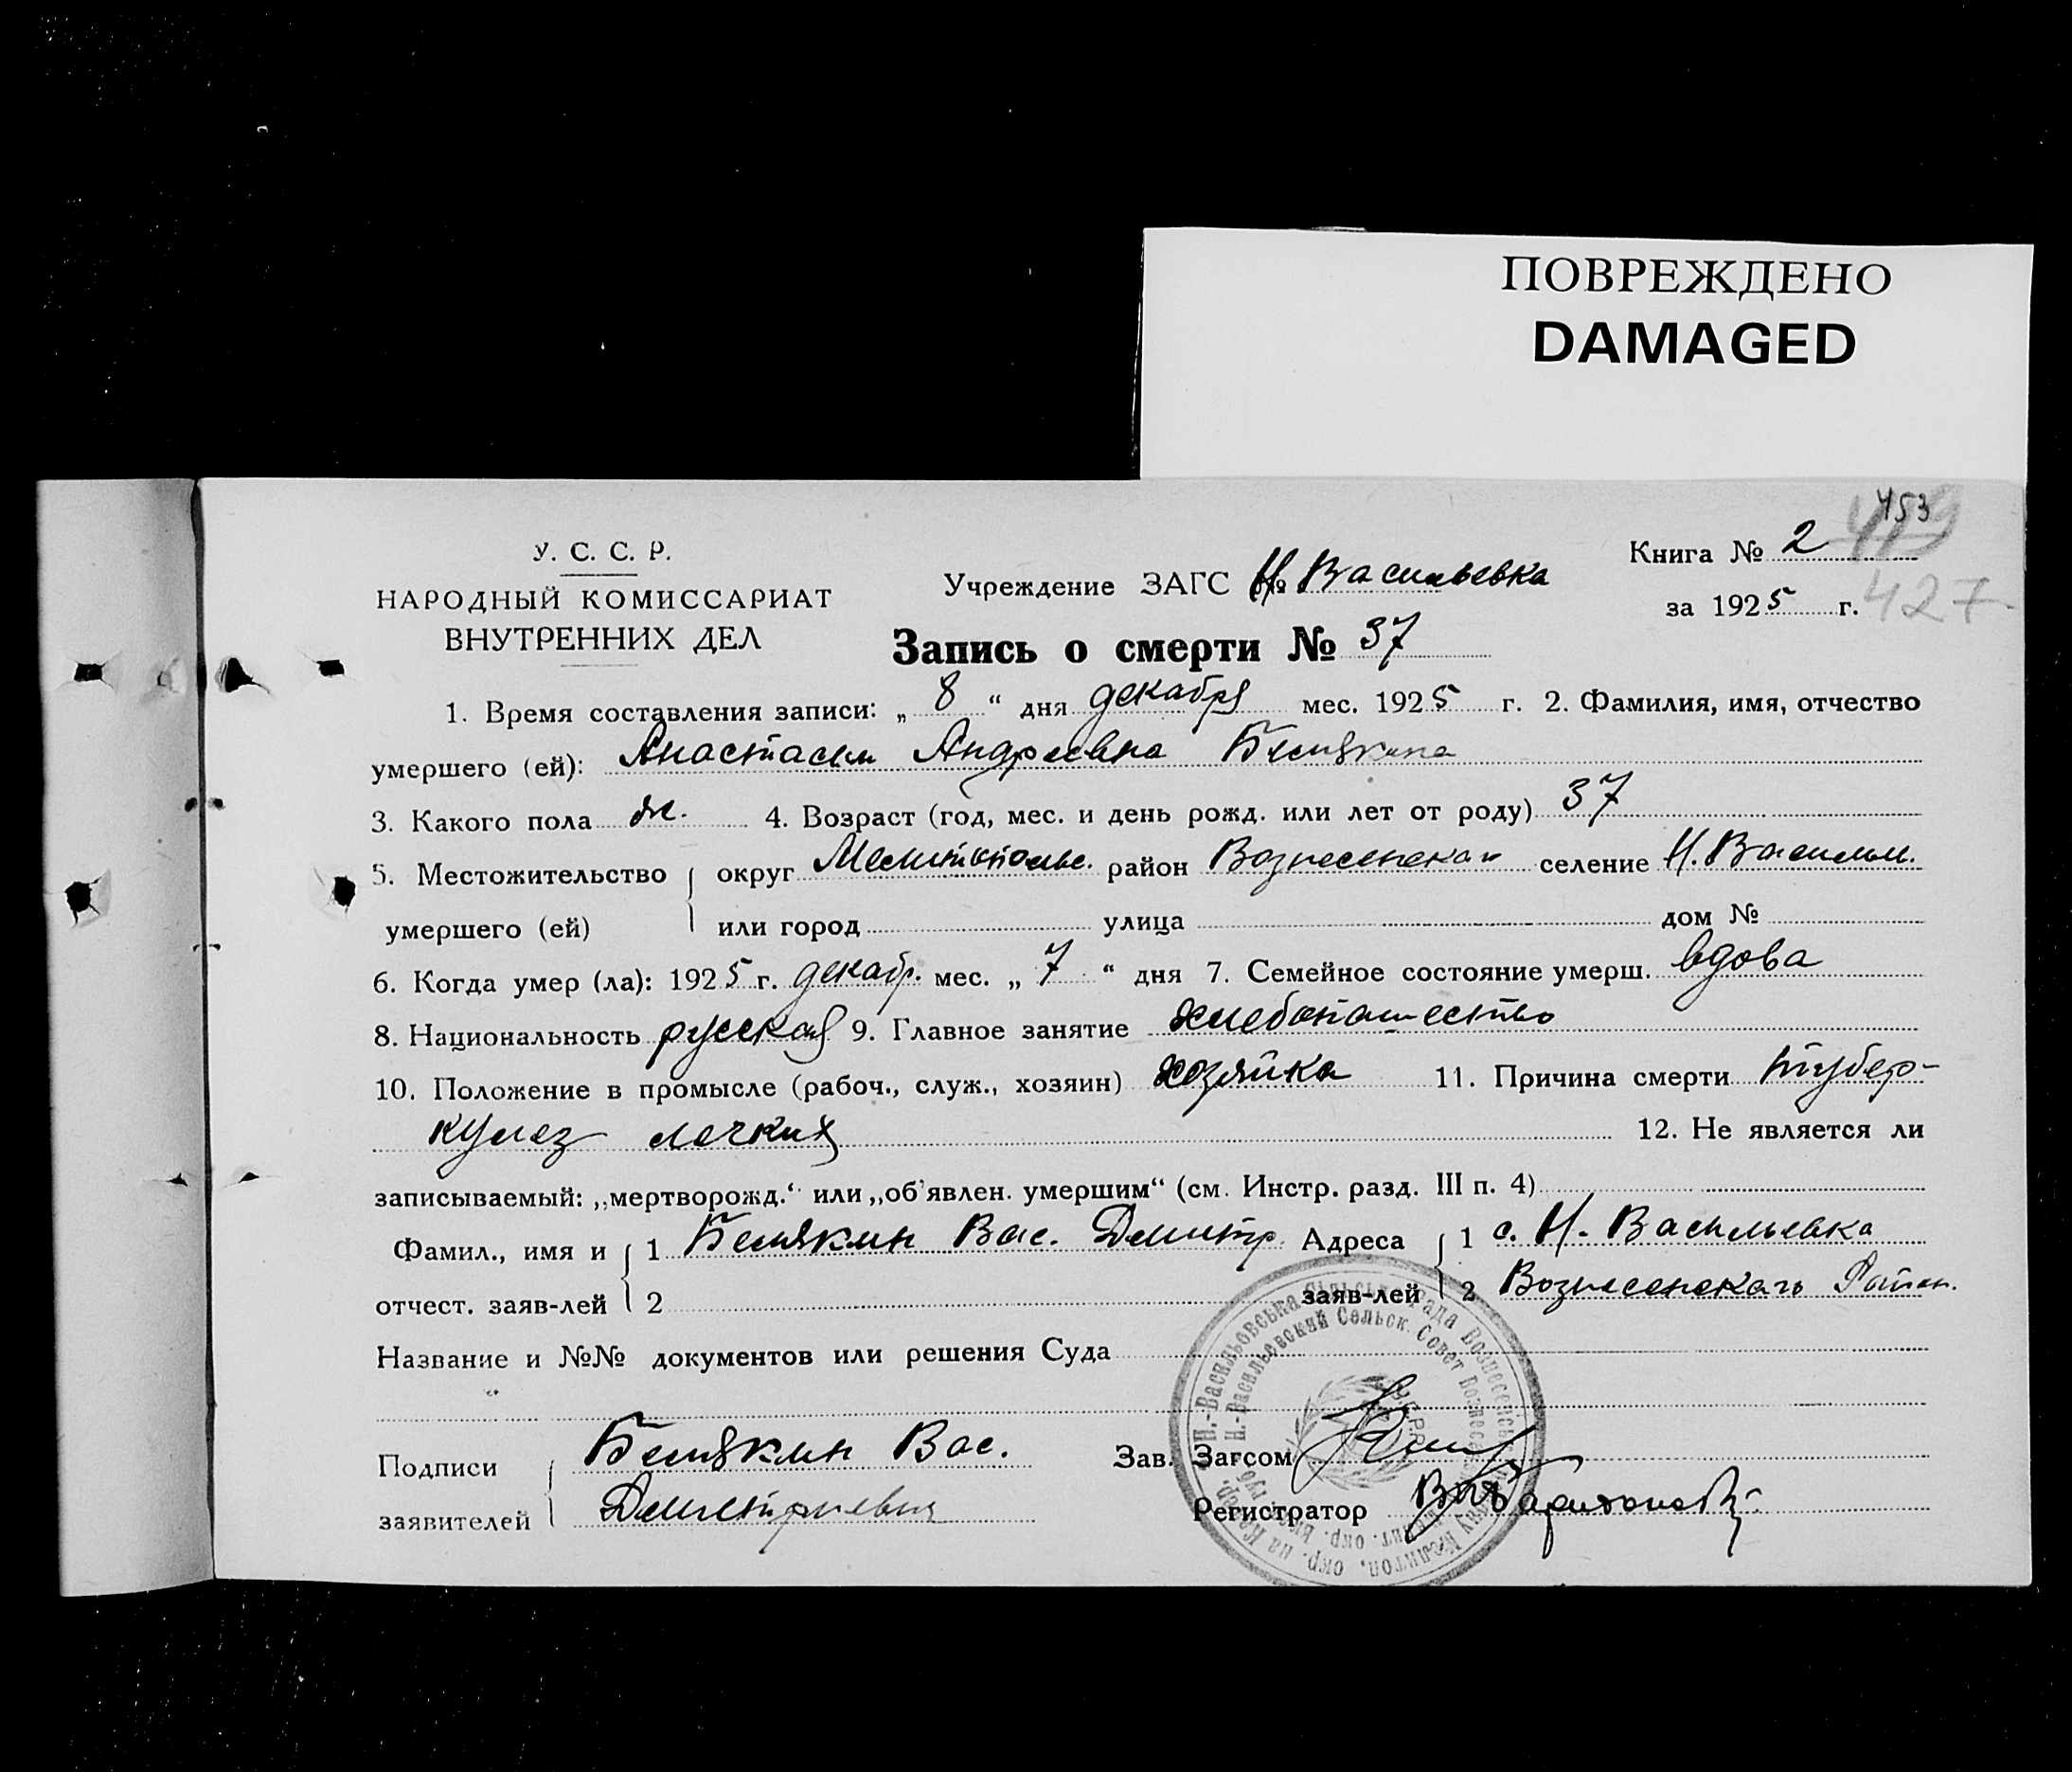 ПОВРЕЖДЕНО
DAMAGED
453
419
427
У. С. С. Р.
НАРОДНЫЙ КОМИССАРИАТ
ВНУТРЕННИХ ДЕЛ
Учреждение ЗАГС Н. Васильевка
Книга № 2
за 1925 г.
Запись о смерти № 37
1. Время составления записи: „ 8 “ дня декабря мес. 1925 г. 2. Фамилия, имя, отчество
умершего (ей): Анастасия Андреевна Белякина
3. Какого пола ж. 4. Возраст (год, мес. и день рожд. или лет от роду) 37
5. Местожительство умершего (ей) округ Мелитопольс. район Вознесенский селение Н. Васильев.
или город улица дом №
6. Когда умер (ла): 1925 г. декабр. мес. „ 7 “ дня 7. Семейное состояние умерш. вдова
8. Национальность русская 9. Главное занятие хлебопашество
10. Положение в промысле (рабоч., служ., хозяин) хозяйка 11. Причина смерти тубер-
кулез легких 12. Не является ли
записываемый: „мертворожд.“ или „об'явлен. умершим“ (см. Инстр. разд. III п. 4)
Фамил., имя и отчест. заяв-лей 1 Белякин Вас. Дмитр. Адреса заяв-лей 1 с. Н. Васильевка
2 2 Вознесенскаго Район.
Название и №№ документов или решения Суда
Подписи заявителей Белякин Вас.
Дмитриевич
Зав. Загсом
Регистратор
Н.-Васильовська Сільська Рада Вознесенськ
Н.-Васильевский Сельск. Совет